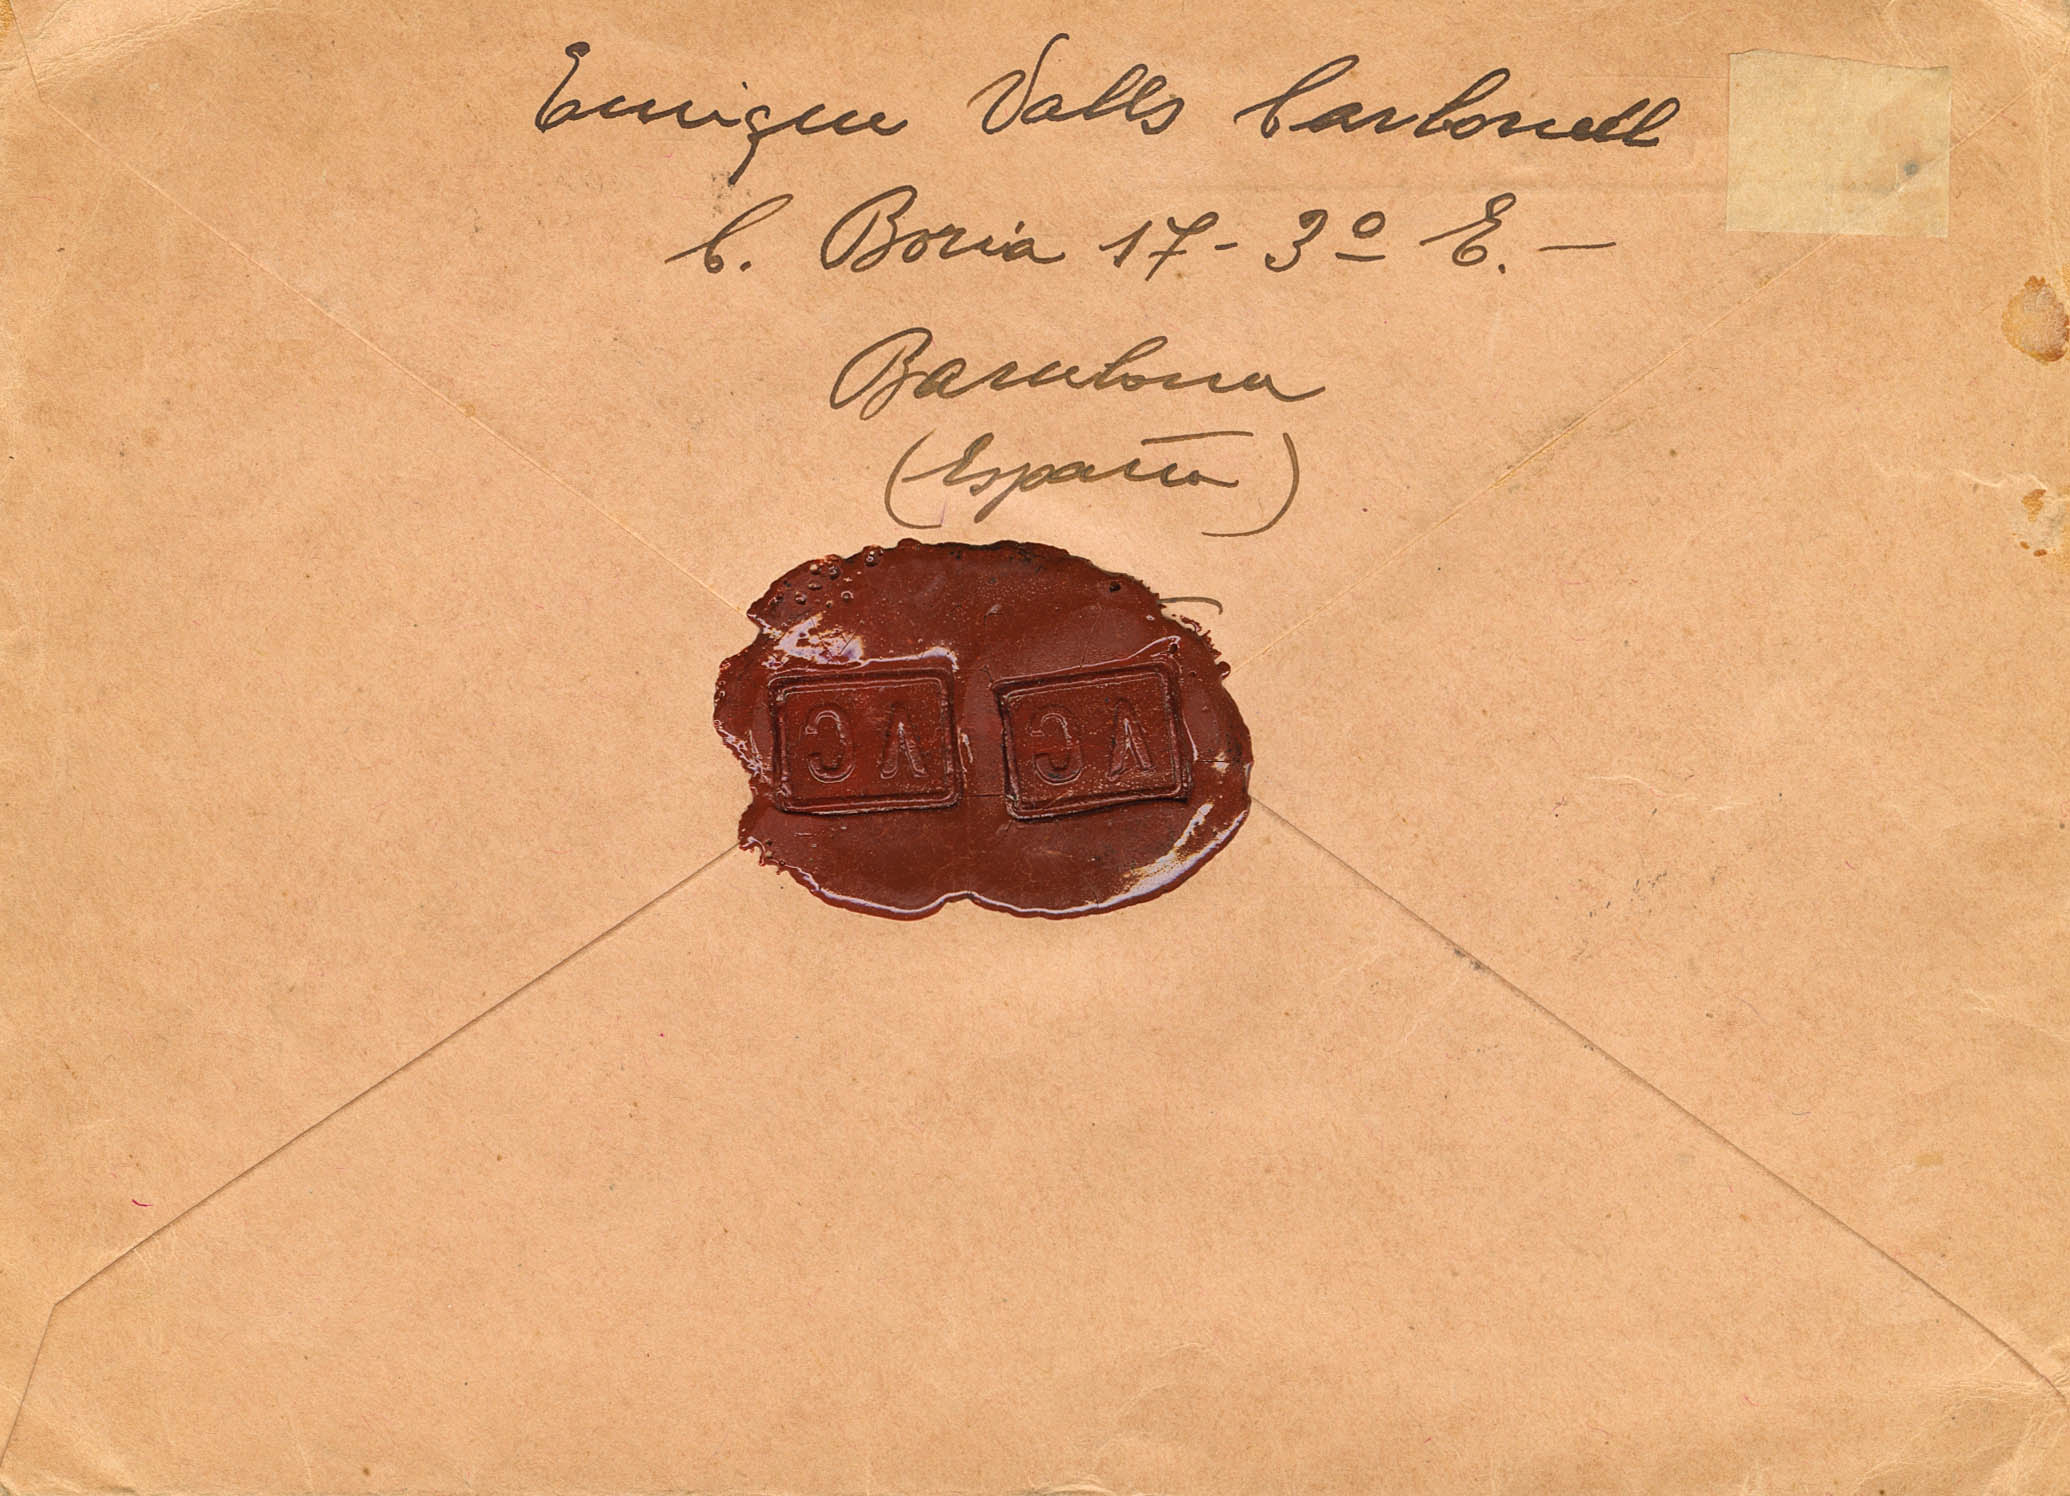 Enrique Valls Carbonell
C. Boria 17 - 3º E. —
Barcelona
(España)
VC VC